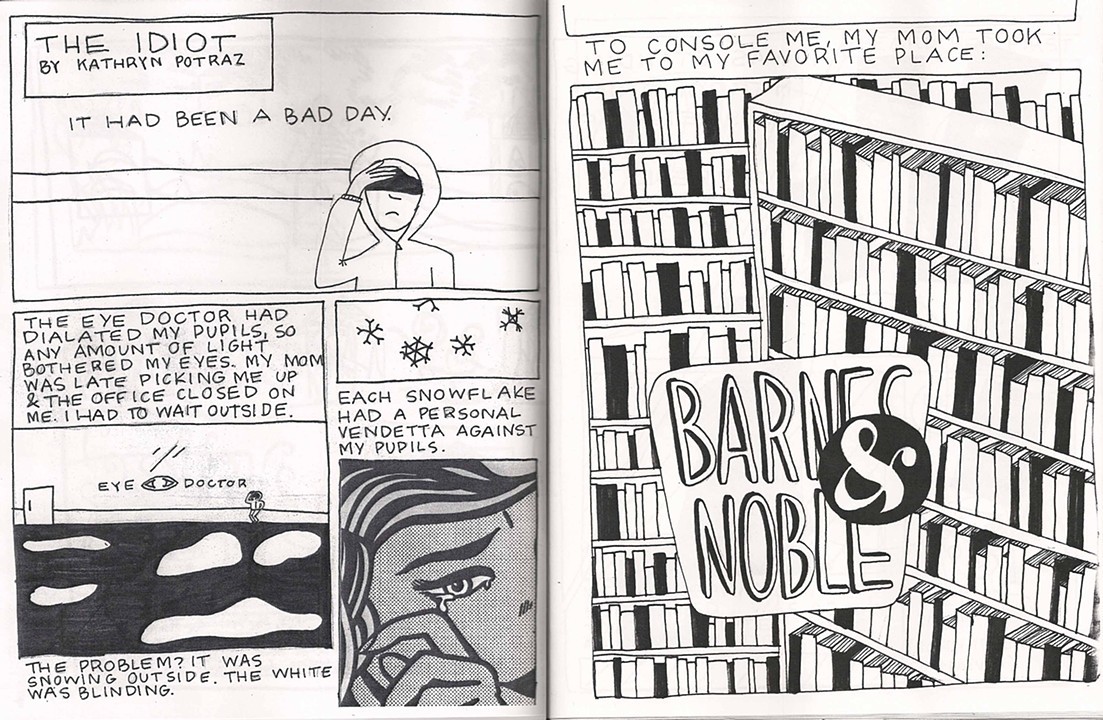 THE IDIOT
BY KATHRYN POTRAZ
IT HAD BEEN A BAD DAY.
THE EYE DOCTOR HAD
DIALATED MY PUPILS, SO
ANY AMOUNT OF LIGHT
BOTHERED MY EYES. MY MOM
WAS LATE PICKING ME UP
& THE OFFICE CLOSED ON
ME. I HAD TO WAIT OUTSIDE.
EYE DOCTOR
THE PROBLEM? IT WAS
SNOWING OUTSIDE. THE WHITE
WAS BLINDING.
EACH SNOWFLAKE
HAD A PERSONAL
VENDETTA AGAINST
MY PUPILS.
TO CONSOLE ME, MY MOM TOOK
ME TO MY FAVORITE PLACE:
BARNES
&
NOBLE